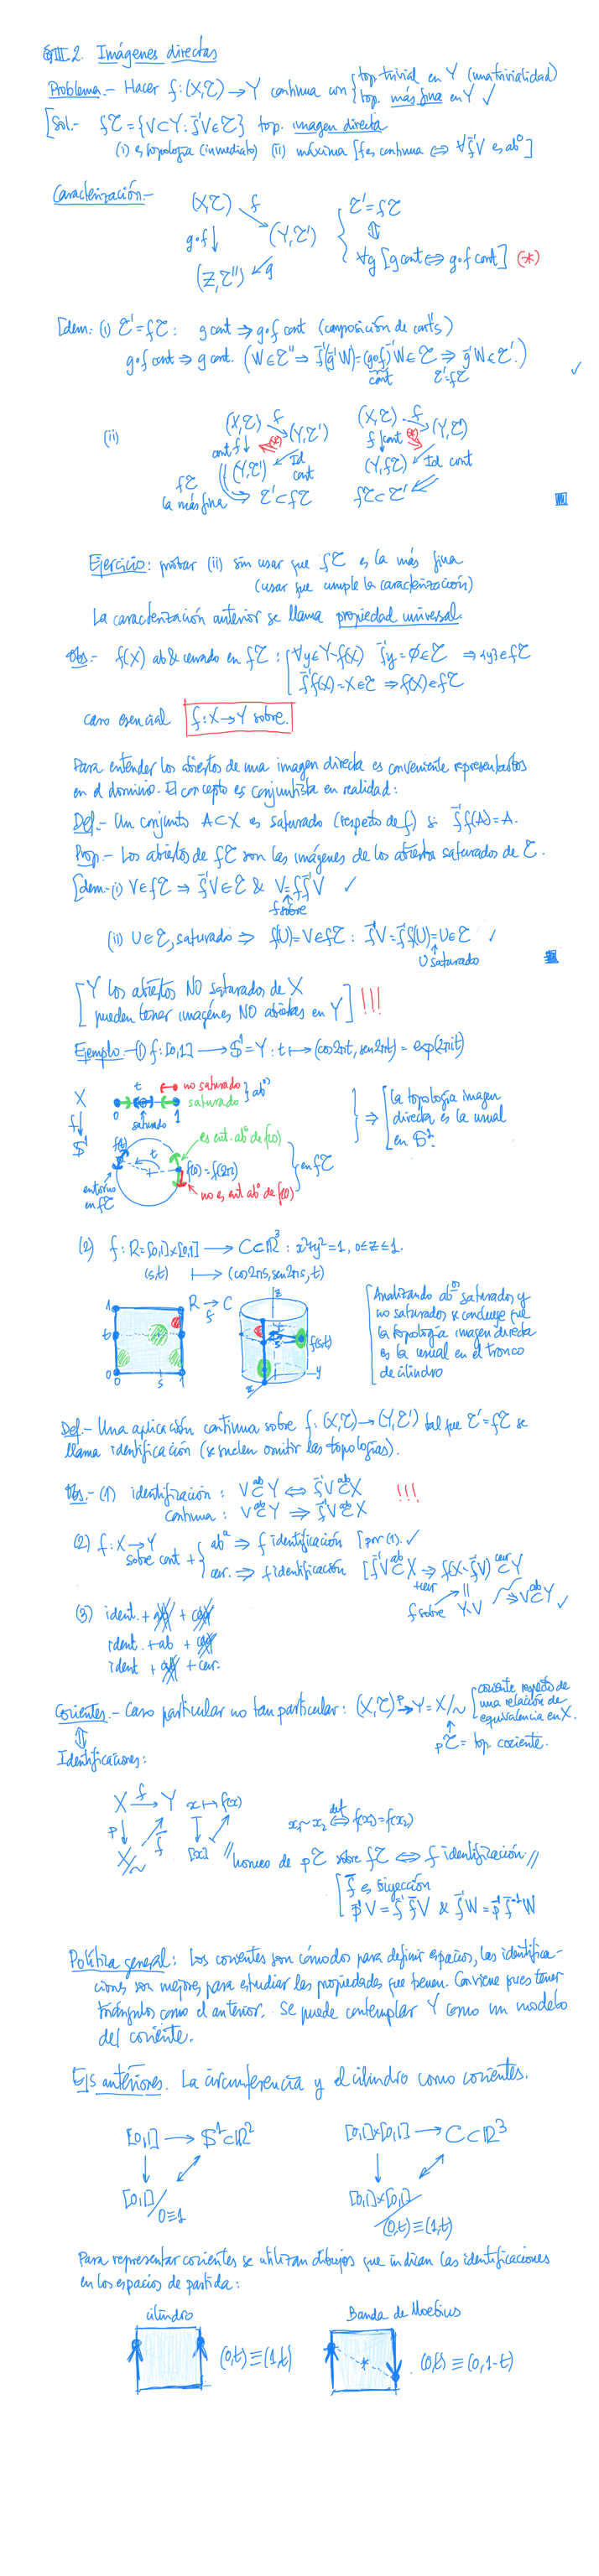 §III.2. Imágenes directas
Problema.- Hacer f:(X,𝒯)→Y continua con { top. trivial en Y (una trivialidad)
top. más fina en Y ✓
[Sol.- f𝒯={V⊂Y: f⁻¹V∈𝒯} top. imagen directa
(i) es topología (inmediato) (ii) máxima [f es continua ⇔ ∀ f⁻¹V es abº]
Caracterización.-
(X,𝒯) f
g∘f↓ (Y,𝒯')
(Z,𝒯'') ↙g
𝒯'=f𝒯
⇕
∀g [g cont ⇔ g∘f cont] (*)
[dem: (i) 𝒯'=f𝒯: g cont ⇒ g∘f cont (composición de cont's)
g∘f cont ⇒ g cont. (W∈𝒯'' ⇒ f⁻¹(g⁻¹W)=(g∘f)⁻¹W∈𝒯 ⇒ g⁻¹W∈𝒯'.) ✓
cont 𝒯'=f𝒯
(ii) (X,𝒯) f→ (Y,𝒯') (X,𝒯) f→ (Y,𝒯')
cont f↓ (*) f↓cont (*)
(Y,𝒯') Id cont (Y,f𝒯) Id cont
f𝒯 la más fina ⇒ 𝒯'⊂f𝒯 f𝒯⊂𝒯'
Ejercicio: probar (ii) sin usar que f𝒯 es la más fina
(usar que cumple la caracterización)
La caracterización anterior se llama propiedad universal.
Obs.- f(X) ab & cerrado en f𝒯: { ∀y∈Y∖f(X) f⁻¹y=∅∈𝒯 ⇒ {y}∈f𝒯
f⁻¹f(X)=X∈𝒯 ⇒ f(X)∈f𝒯
caso esencial f:X→Y sobre.
Para entender los abiertos de una imagen directa es conveniente representarlos
en el dominio. El concepto es conjuntista en realidad:
Def.- Un conjunto A⊂X es saturado (respecto de f) si f⁻¹f(A)=A.
Prop.- Los abiertos de f𝒯 son las imágenes de los abiertos saturados de 𝒯.
[dem.- (i) V∈f𝒯 ⇒ f⁻¹V∈𝒯 & V=ff⁻¹V ✓
f sobre
(ii) U∈𝒯, saturado ⇒ f(U)=V∈f𝒯: f⁻¹V=f⁻¹f(U)=U∈𝒯 ✓
U saturado
[Y los abiertos NO saturados de X
pueden tener imagénes NO abiertas en Y] !!!
Ejemplo.- (1) f:[0,1]→𝕊¹=Y: t↦(cos2πt, sen2πt)=exp(2πit)
X t no saturado } abº
0 1 saturado
f↓ saturado
𝕊¹ f(t) es ent. abº de f(0)
t f(0)=f(2π) } en f𝒯
entorno en f𝒯 no es ent abº de f(0)
⇒ [la topología imagen
directa es la usual
en 𝕊¹.
(2) f:R=[0,1]×[0,1]→C⊂ℝ³: x²+y²=1, 0≤z≤1.
(s,t) ↦ (cos2πs, sen2πs, t)
1 R f→ C z
t f(s,t)
0 0 s 1 x y
[Analizando abºs saturados y
no saturados se concluye que
la topología imagen directa
es la usual en el tronco
de cilindro
Def.- Una aplicación continua sobre f:(X,𝒯)→(Y,𝒯') tal que 𝒯'=f𝒯 se
llama identificación (se suelen omitir las topologías).
Obs.- (1) identificación: V ab⊂ Y ⇔ f⁻¹V ab⊂ X !!!
continua: V ab⊂ Y ⇒ f⁻¹V ab⊂ X
(2) f:X→Y sobre cont + { abª ⇒ f identificación [por (1). ✓
cerr. ⇒ f identificación [f⁻¹V ab⊂ X ⇒ f(X∖f⁻¹V) cerr⊂ Y
+cerr
f sobre Y∖V ⇒ V ab⊂ Y ✓
(3) ident. + ab + cerr
ident. + ab + cerr
ident + ab + cerr.
Cocientes.- Caso particular no tan particular: (X,𝒯) p→ Y=X/∼ [cociente respecto de
una relación de
equivalencia en X.
p𝒯 = top. cociente.
⇕
Identificaciones:
X f→ Y x↦f(x)
p↓ f̄ [x]
X/∼
x₁∼x₂ def⇔ f(x₁)=f(x₂)
// homeo de p𝒯 sobre f𝒯 ⇔ f identificación //
[f̄ es biyección
p⁻¹V=f⁻¹f̄V & f⁻¹W=p⁻¹f̄⁻¹W
Política general: Los cocientes son cómodos para definir espacios, las identifica-
ciones son mejores para estudiar las propiedades que tienen. Conviene pues tener
triángulos como el anterior. Se puede contemplar Y como un modelo
del cociente.
Ejs anteriores. La circunferencia y el cilindro como cocientes.
[0,1]→𝕊¹⊂ℝ² [0,1]×[0,1]→C⊂ℝ³
[0,1]/0≡1 [0,1]×[0,1]/(0,t)≡(1,t)
Para representar cocientes se utilizan dibujos que indican las identificaciones
en los espacios de partida:
cilindro Banda de Moebius
(0,t)≡(1,t) (0,t)≡(0,1-t)